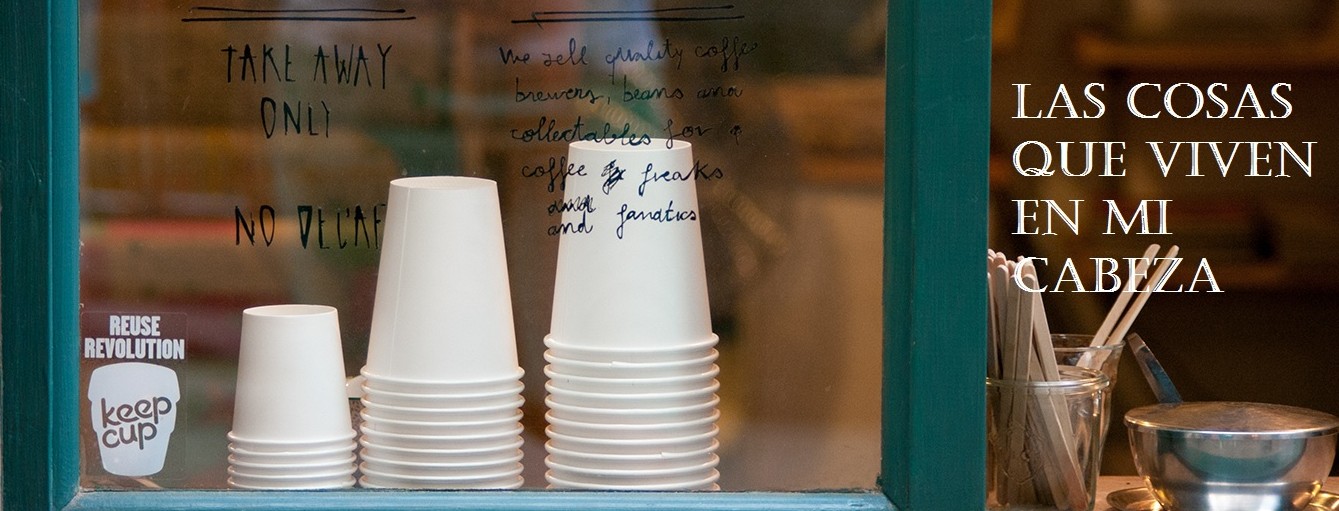 TAKE AWAY
ONLY
NO DECAF
We sell quality coffee
brewers, beans and
collectables for
coffee freaks
and fanatics
REUSE
REVOLUTION
keep
cup
LAS COSAS
QUE VIVEN
EN MI
CABEZA